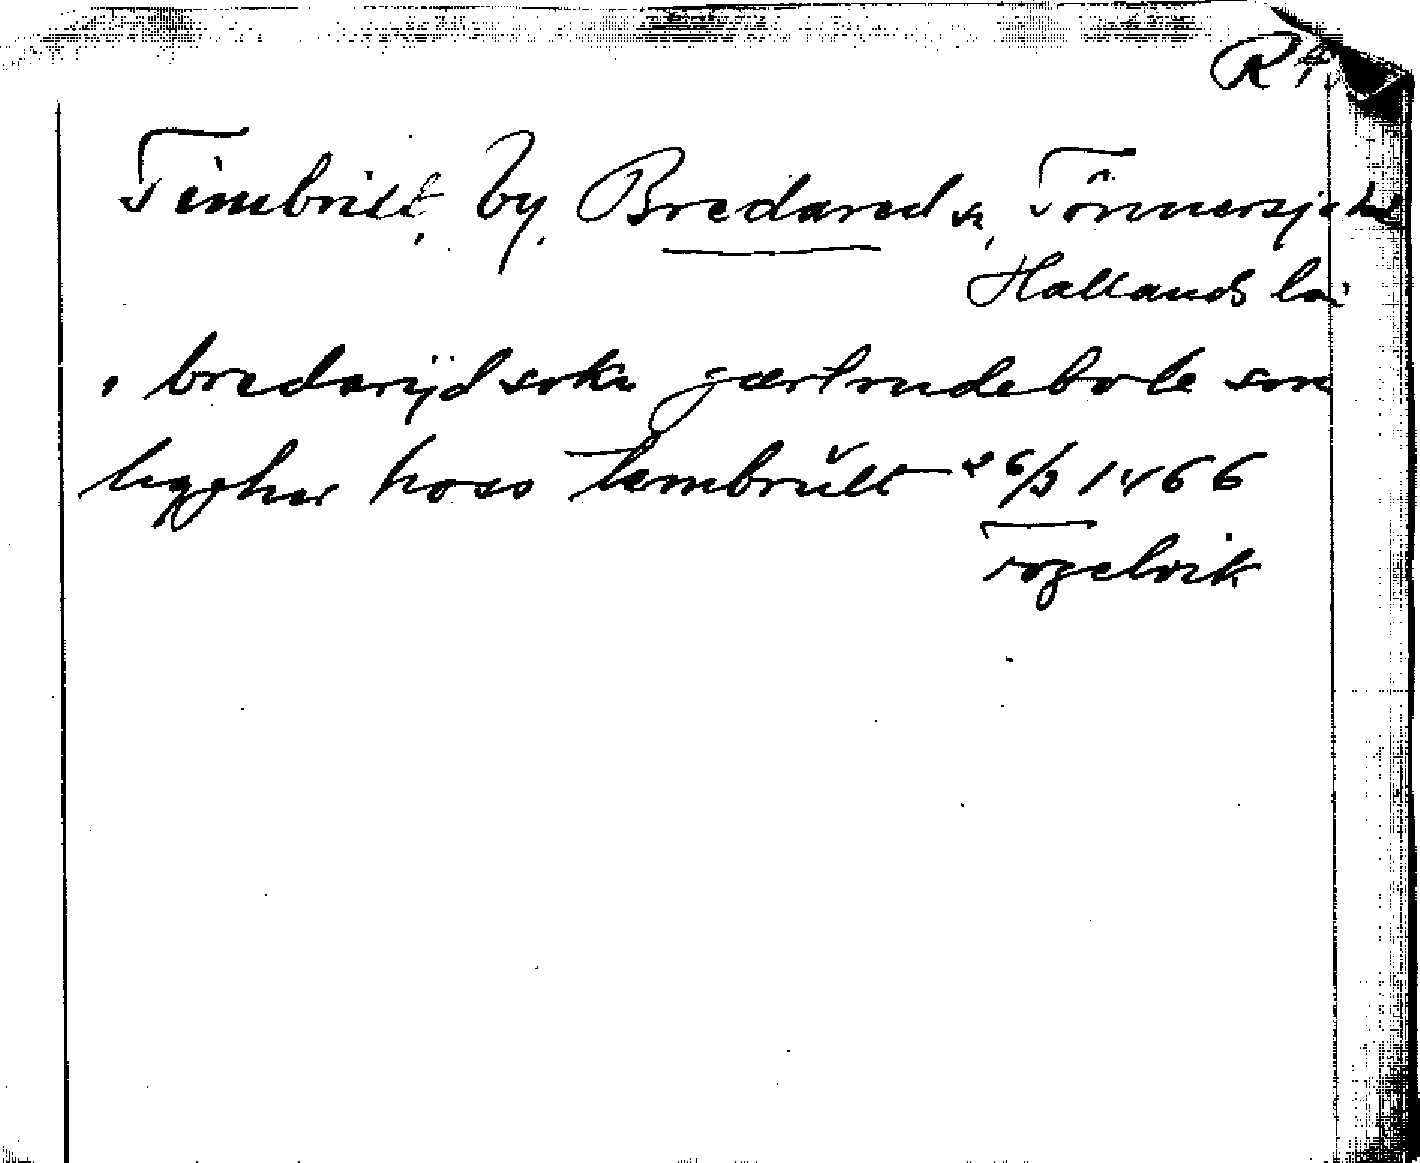 Timbrilt, by, Bredared sn, Tönnersjö hd
Hallands län
i bredarijd sokn gærtrudebole som
ligghar hoss tembrült 26/3 1466
Fogelvik